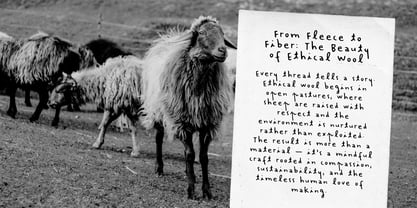 From Fleece to
Fiber: The Beauty
of Ethical Wool
Every thread tells a story.
Ethical wool begins in
open pastures, where
sheep are raised with
respect and the
environment is nurtured
rather than exploited.
The result is more than a
material — it's a mindful
craft rooted in compassion,
sustainability, and the
timeless human love of
making.